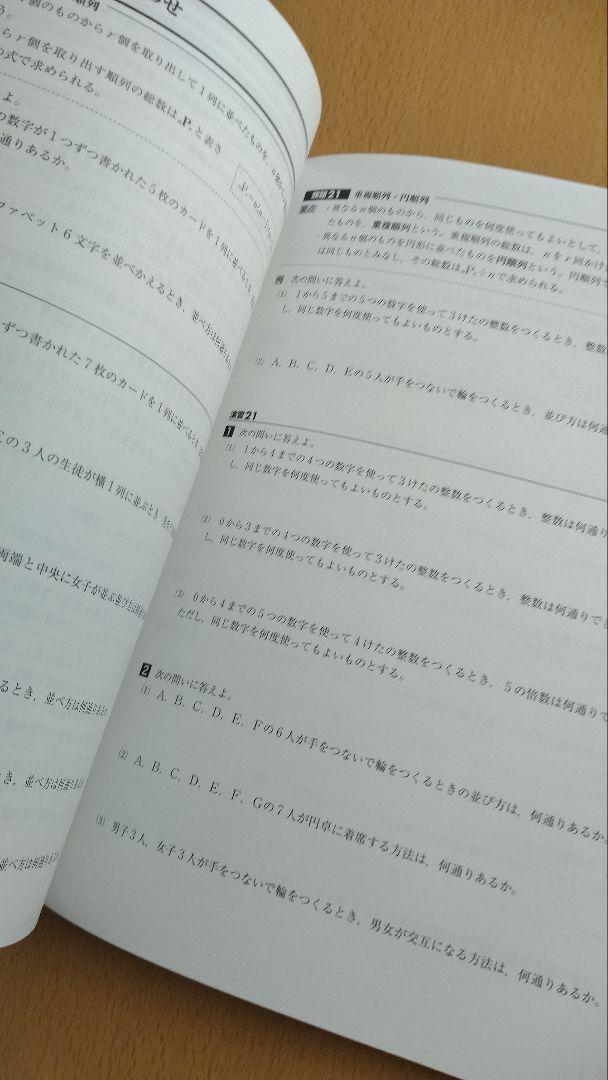 順列
個のものから r 個を取り出して1列に並べたものを、
ら r 個を取り出す順列の総数は nPr と表さ
の式で求められる。
よ。
の数字が1つずつ書かれた5枚のカードを1列に
通りあるか。
ァベット6文字を並べかえるとき、並べ方は何通り
ずつ書かれた7枚のカードを1列に並べるとき、
の3人の生徒が横1列に並ぶとき、
両端と中央に女子が並ぶ並び方は何通り
るとき、並べ方は何通りあるか
き、並べ方は何通りあるか
並べ方は何通りあるか
類題21 重複順列・円順列
要点 ・異なるn個のものから、同じものを何度使ってもよいとして、
たものを、重複順列という。重複順列の総数は、nをr回かけ
・異なるn個のものを円形に並べたものを円順列という。円順列で
は同じものとみなし、その総数はnPn÷nで求められる。
例 次の問いに答えよ。
(1) 1から5までの5つの数字を使って3けたの整数をつくるとき、整数
し、同じ数字を何度使ってもよいものとする。
(2) A、B、C、D、Eの5人が手をつないで輪をつくるとき、並び方は何通
演習21
1 次の問いに答えよ。
(1) 1から4までの4つの数字を使って3けたの整数をつくるとき、整数は何通り
し、同じ数字を何度使ってもよいものとする。
(2) 0から3までの4つの数字を使って3けたの整数をつくるとき、整数は何通りで
し、同じ数字を何度使ってもよいものとする。
(3) 0から4までの5つの数字を使って4けたの整数をつくるとき、5の倍数は何通りで
ただし、同じ数字を何度使ってもよいものとする。
2 次の問いに答えよ。
(1) A、B、C、D、E、Fの6人が手をつないで輪をつくるときの並び方は、何通りあるか。
(2) A、B、C、D、E、F、Gの7人が円卓に着席する方法は、何通りあるか。
(3) 男子3人、女子3人が手をつないで輪をつくるとき、男女が交互になる方法は、何通りあるか。